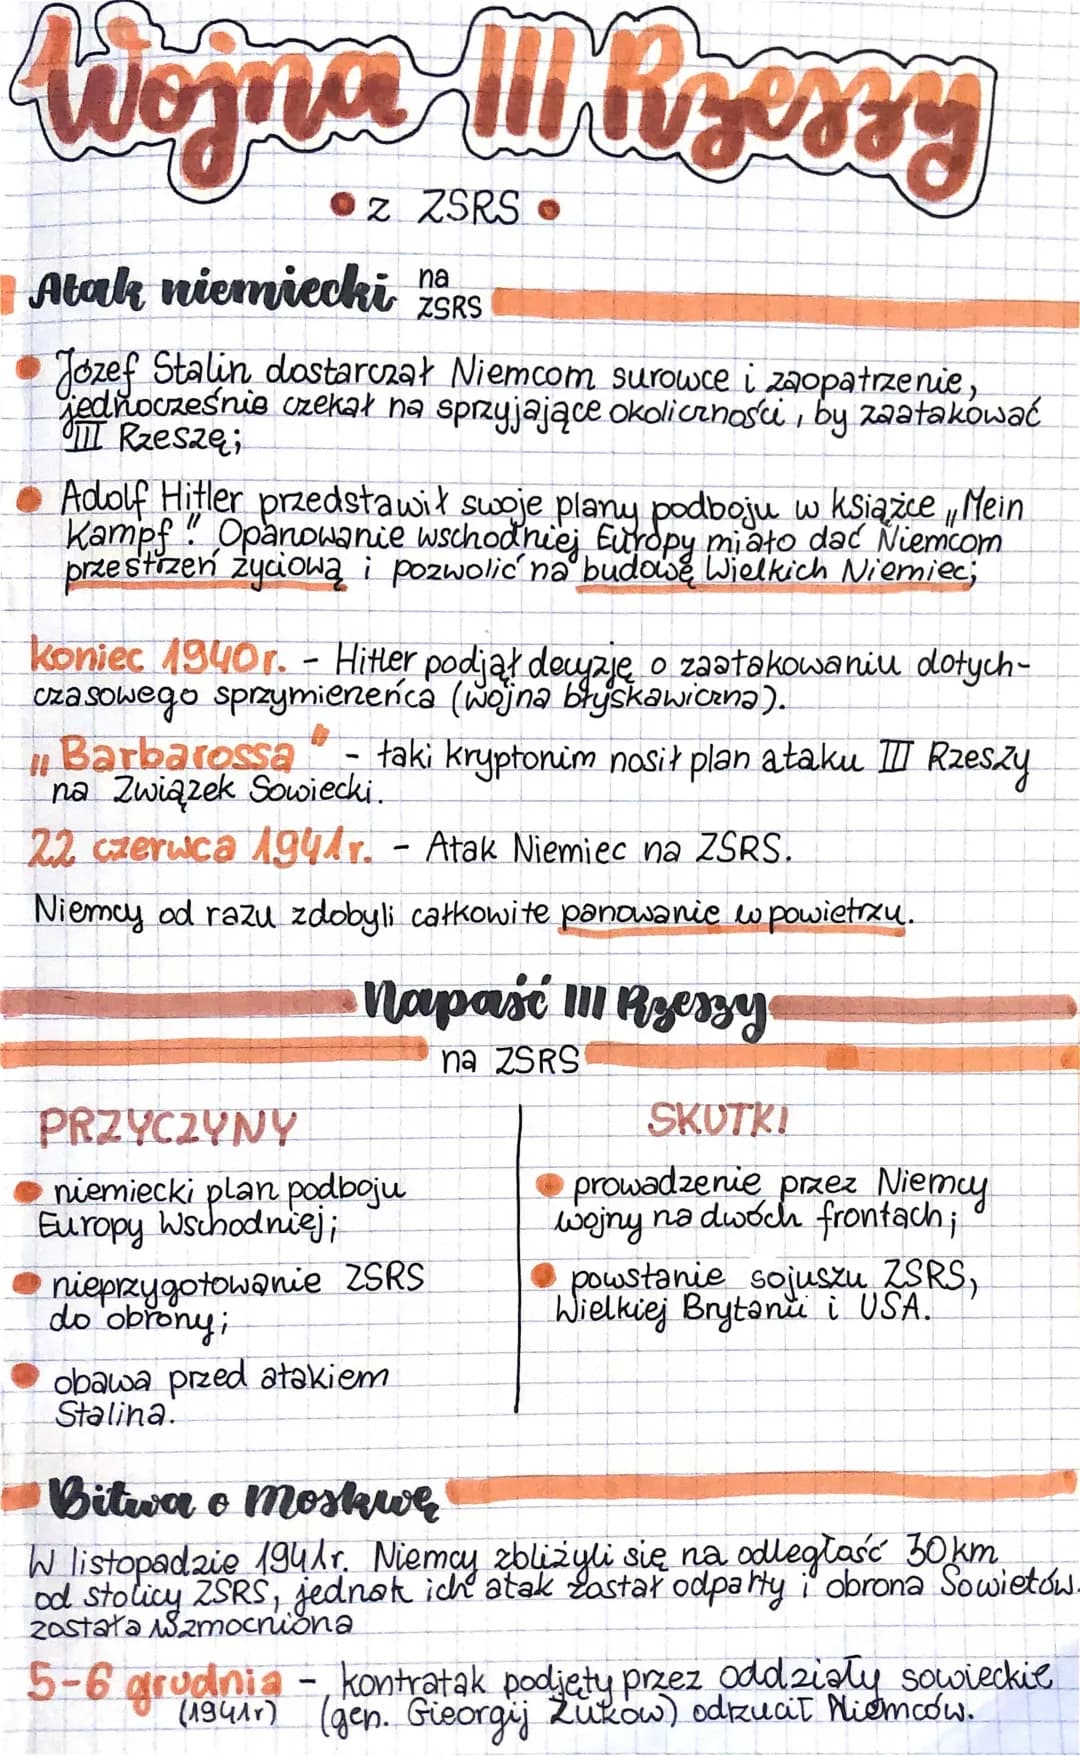 Wojna III Rzeszy
• z ZSRS •
Atak niemiecki na ZSRS
• Józef Stalin dostarczał Niemcom surowce i zaopatrzenie,
jednocześnie czekał na sprzyjające okoliczności, by zaatakować
III Rzeszę;
• Adolf Hitler przedstawił swoje plany podboju w książce „Mein
Kampf". Opanowanie wschodniej Europy miało dać Niemcom
przestrzeń życiową i pozwolić na budowę Wielkich Niemiec;
koniec 1940r. - Hitler podjął decyzję o zaatakowaniu dotych-
czasowego sprzymierzeńca (wojna błyskawiczna).
„Barbarossa" - taki kryptonim nosił plan ataku III Rzeszy
na Związek Sowiecki.
22 czerwca 1941r. - Atak Niemiec na ZSRS.
Niemcy od razu zdobyli całkowite panowanie w powietrzu.
Napaść III Rzeszy
na ZSRS
PRZYCZYNY
• niemiecki plan podboju
Europy Wschodniej;
• nieprzygotowanie ZSRS
do obrony;
• obawa przed atakiem
Stalina.
SKUTKI
• prowadzenie przez Niemcy
wojny na dwóch frontach;
• powstanie sojuszu ZSRS,
Wielkiej Brytanii i USA.
Bitwa o Moskwę
W listopadzie 1941r. Niemcy zbliżyli się na odległość 30km
od stolicy ZSRS, jednak ich atak został odparty i obrona Sowietów
została wzmocniona
5-6 grudnia - kontratak podjęty przez oddziały sowieckie
(1941r) (gen. Gieorgij Żukow) odrzucił Niemców.